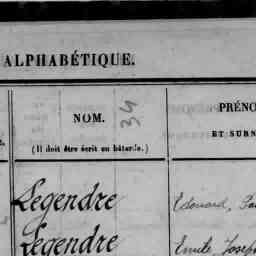 ALPHABÉTIQUE.
NOM.
34
(Il doit être écrit en bâtarde.)
PRÉNO
ET SURN
Legendre
Edouard,
Legendre
Emile Joseph